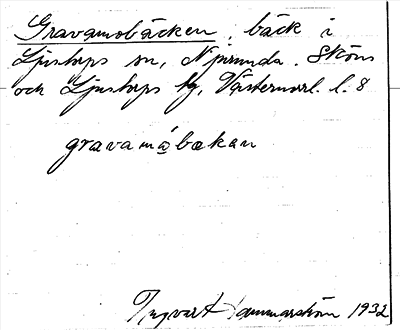 Gravamobäcken, bäck i
Ljustorps sn, Njurunda, Sköns
och Ljustorps tg, Västernorrl. l. 8
gravamåbækan
Ingvart Hammarström 1932